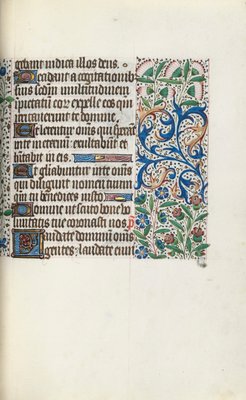 gebant iudica illos deus.
Decidant a cogitationib
suis scdm multitudinem
ipietatū eoꝝ expelle eos qm̄
irritauerunt te domine.
Et letentur om̄s qui sperāt
in te in eternū exultabūt et
habitabit in eis.
Et gloriabuntur in te om̄s
qui diligunt nomen tuum
qm̄ tu benedices iusto
Domine ut scuto bone vo
luntatis tue coronasti nos
Laudate dominū om̄s
gentes: laudate eum